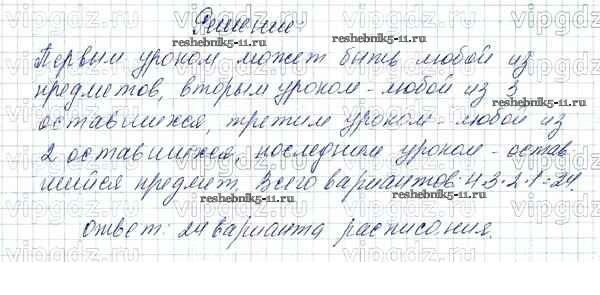 Решение:
Первым уроком может быть любой из
предметов, вторым уроком - любой из 3
оставшихся, третим уроком - любой из
2 оставшихся, последним уроком - остав
шийся предмет. Всего вариантов: 4·3·2·1=24.
ответ: 24 варианта расписания.
vipgdz.com
reshebnik5-11.ru
reshebnik5-11.ru
reshebnik5-11.ru
reshebnik5-11.ru
reshebnik5-11.ru